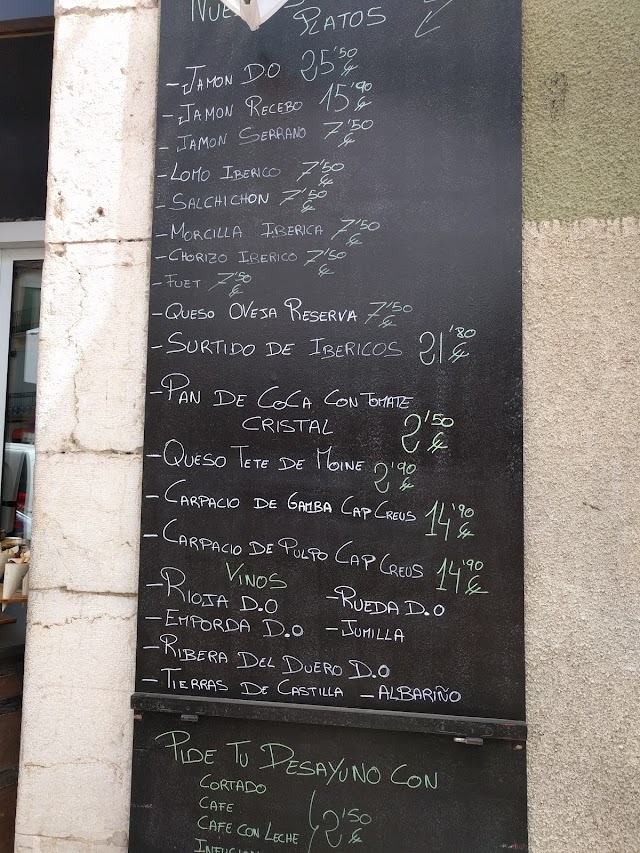 PLATOS
- JAMON D.O 25'50 €
- JAMON RECEBO 15'90 €
- JAMON SERRANO 7'50 €
- LOMO IBERICO 7'50 €
- SALCHICHON 7'50 €
- MORCILLA IBERICA 7'50 €
- CHORIZO IBERICO 7'50 €
- FUET 7'50 €
- QUESO OVEJA RESERVA 7'50 €
- SURTIDO DE IBERICOS 21'80 €
- PAN DE COCA CON TOMATE
CRISTAL 2'50 €
- QUESO TETE DE MOINE 2'90 €
- CARPACIO DE GAMBA CAP CREUS 14'90 €
- CARPACIO DE PULPO CAP CREUS 14'90 €
VINOS
- RIOJA D.O - RUEDA D.O
- EMPORDA D.O - JUMILLA
- RIBERA DEL DUERO D.O
- TIERRAS DE CASTILLA - ALBARIÑO
PIDE TU DESAYUNO CON
CORTADO
CAFE
CAFE CON LECHE 2'50 €